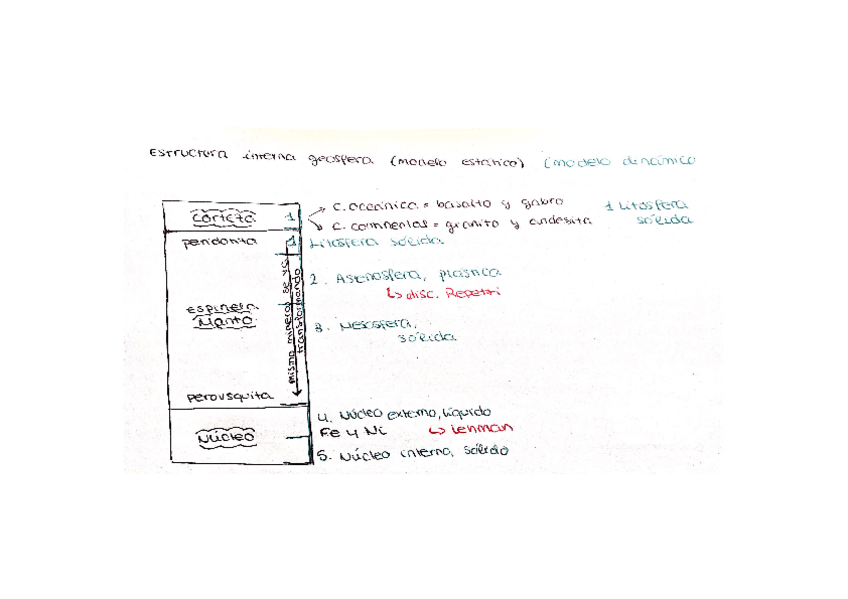 Estructura interna geosfera (modelo estático) (modelo dinámico
corteza 1
c. oceánica = basalto y gabro
c. continental = granito y andesita
1 Litosfera
sólida
peridotita 1
Litosfera sólida
mismo mineral se va
transformando
2. Astenosfera, plástica
↳ disc. Repetti
espinela
Manto
3. Mesosfera,
sólida
perovsquita
4. Núcleo externo, líquido
Fe y Ni ↳ lehman
Núcleo
5. Núcleo interno, sólido